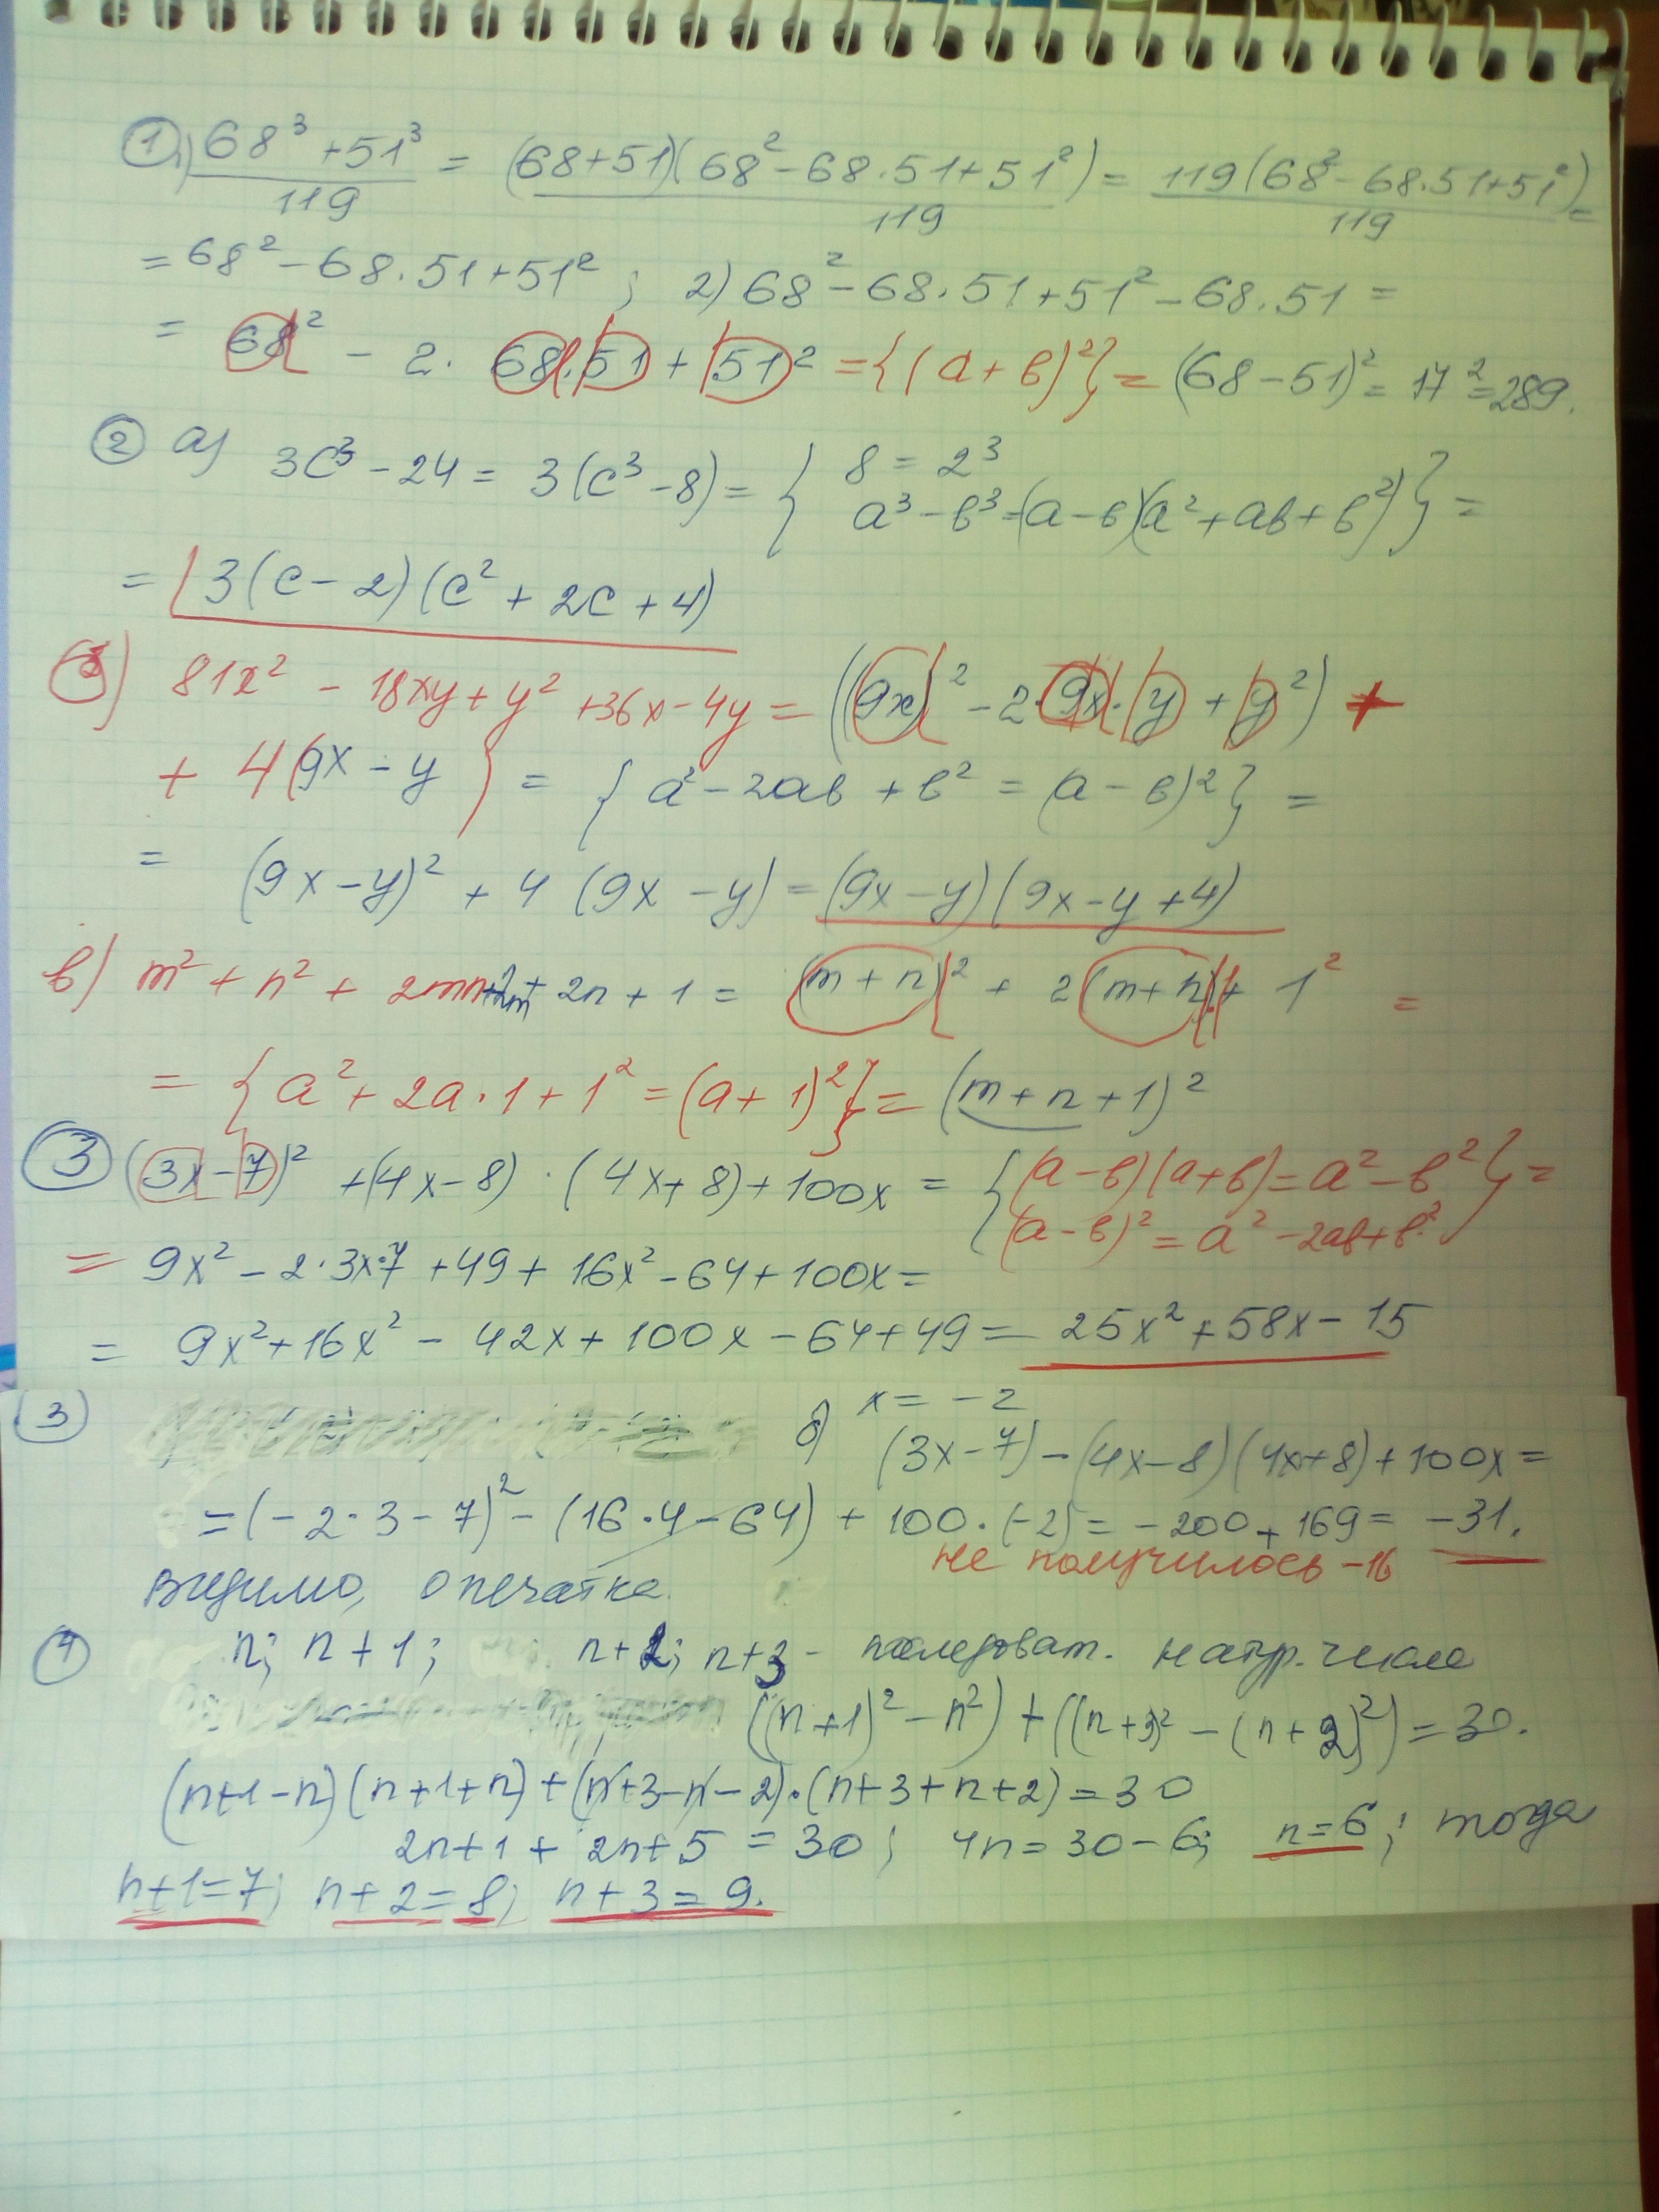 ① 1) (68³ + 51³)/119 = (68+51)(68² – 68·51 + 51²)/119 = 119(68² – 68·51 + 51²)/119 =
= 68² – 68·51 + 51² ; 2) 68² – 68·51 + 51² – 68·51 =
= 68² – 2· 68·51 + 51² = {(a + в)²} = (68 – 51)² = 17² = 289.
② а) 3с³ – 24 = 3(с³ – 8) = { 8 = 2³
a³ – в³ = (a – в)(a² + aв + в²) } =
= 3(с – 2)(с² + 2с + 4)
б) 81x² – 18xy + y² + 36x – 4y = ((9x)² – 2·9x·y + y²) +
+ 4(9x – y) = { a² – 2aв + в² = (a – в)² } =
= (9x – y)² + 4 (9x – y) = (9x – y)(9x – y + 4)
в) m² + n² + 2mn + 2m + 2n + 1 = (m + n)² + 2(m + n)·1 + 1² =
= { a² + 2a·1 + 1² = (a + 1)² } = (m + n + 1)²
③ (3x – 7)² + (4x – 8) · (4x + 8) + 100x = { (a – в)(a + в) = a² – в²
(a – в)² = a² – 2aв + в² } =
= 9x² – 2·3x·7 + 49 + 16x² – 64 + 100x =
= 9x² + 16x² – 42x + 100x – 64 + 49 = 25x² + 58x – 15
③ б) x = – 2
(3x – 7) – (4x – 8)(4x + 8) + 100x =
= (– 2·3 – 7)² – (16·4 – 64) + 100·(–2) = – 200 + 169 = – 31.
не получилось –16
Видимо, опечатка.
④ n; n + 1; n + 2; n + 3 – последоват. натур. числа
((n + 1)² – n²) + ((n + 3)² – (n + 2)²) = 30.
(n+1 – n)(n + 1 + n) + (n + 3 – n – 2)·(n + 3 + n + 2) = 30
2n + 1 + 2n + 5 = 30 ; 4n = 30 – 6; n = 6 ; тогда
n + 1 = 7; n + 2 = 8; n + 3 = 9.